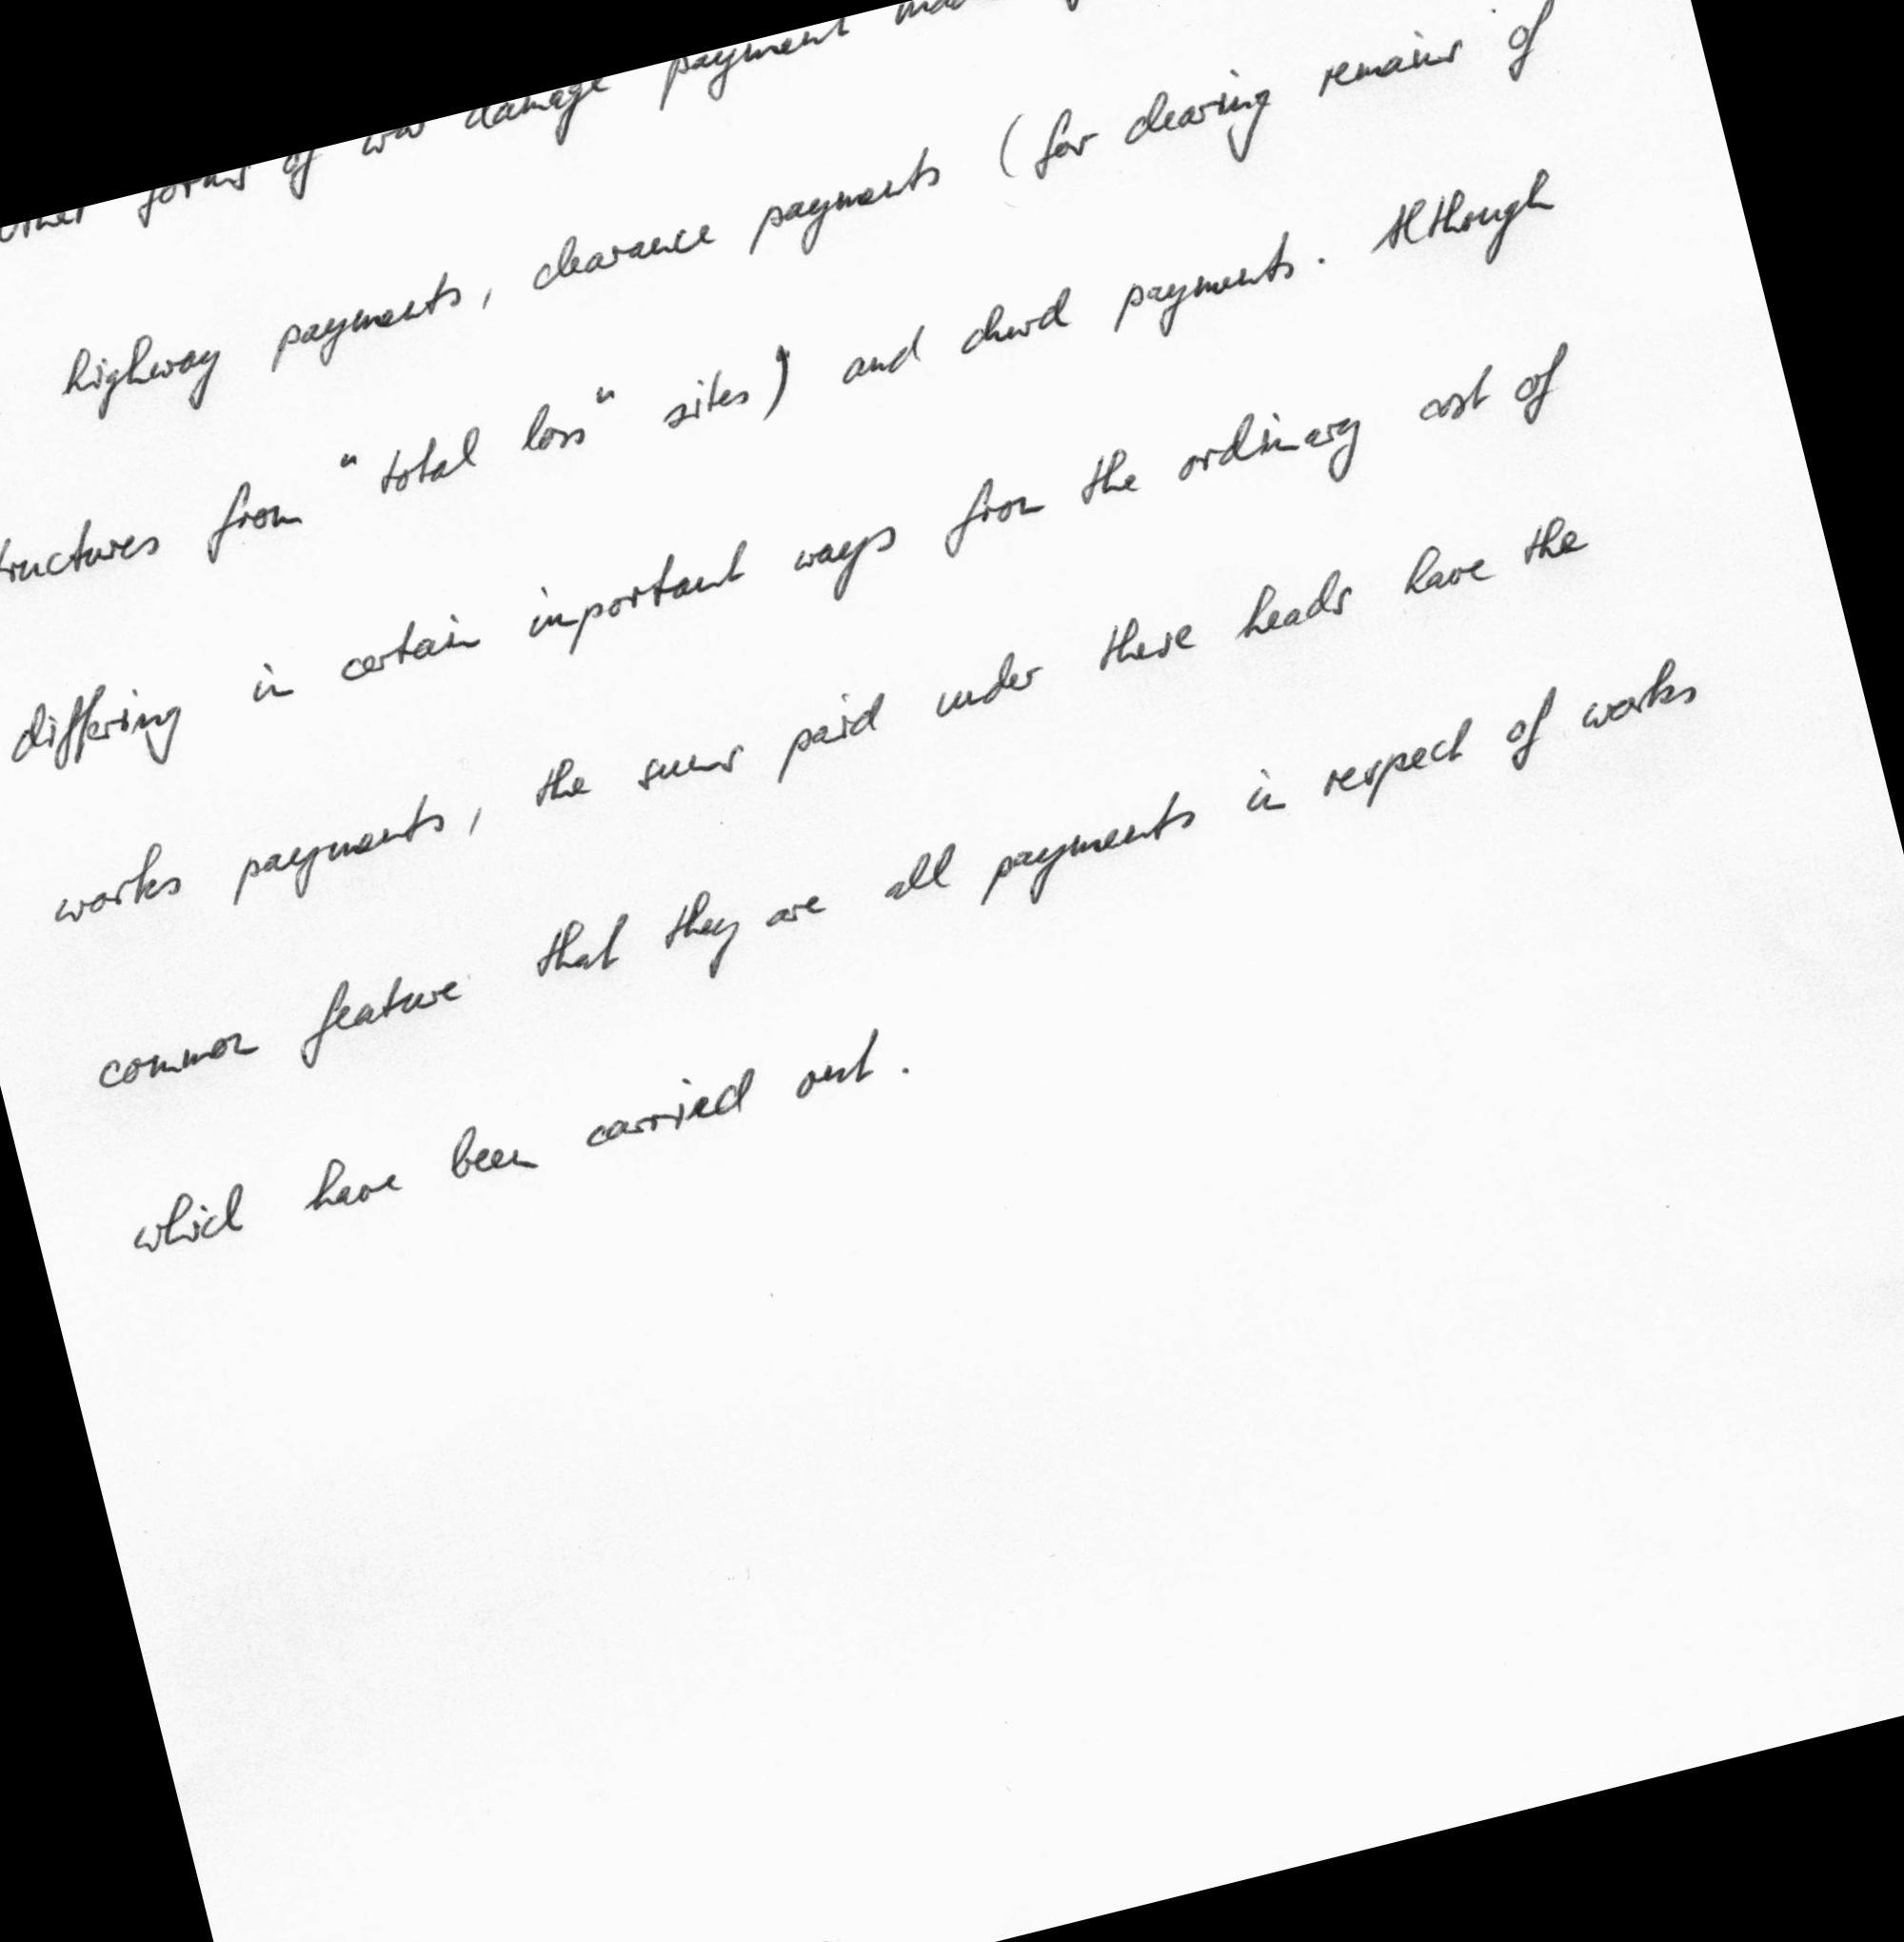 other forms of war damage payment
highway payments, clearance payments (for clearing remains of
tructures from "total loss" sites) and church payments. Although
differing in certain important ways from the ordinary cost of
works payments, the sums paid under these heads have the
common feature that they are all payments in respect of works
which have been carried out.